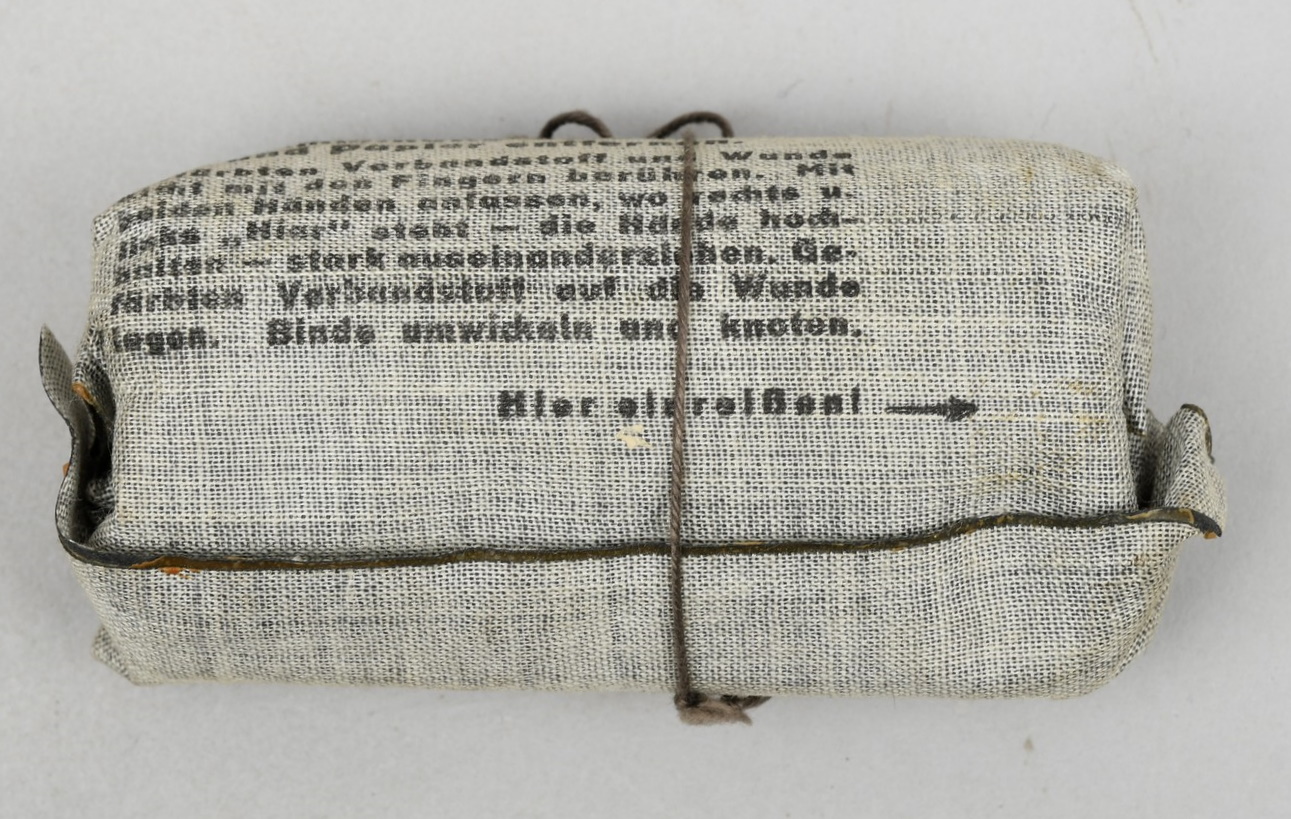 und Papier entfernen.
färbten Verbandstoff und Wunde
cht mit den Fingern berühren. Mit
beiden Händen anfassen, wo rechts u.
links „Hier“ steht — die Hände hoch-
halten — stark auseinanderziehen. Ge-
färbten Verbandstoff auf die Wunde
legen. Binde umwickeln und knoten.
Hier einreißen!